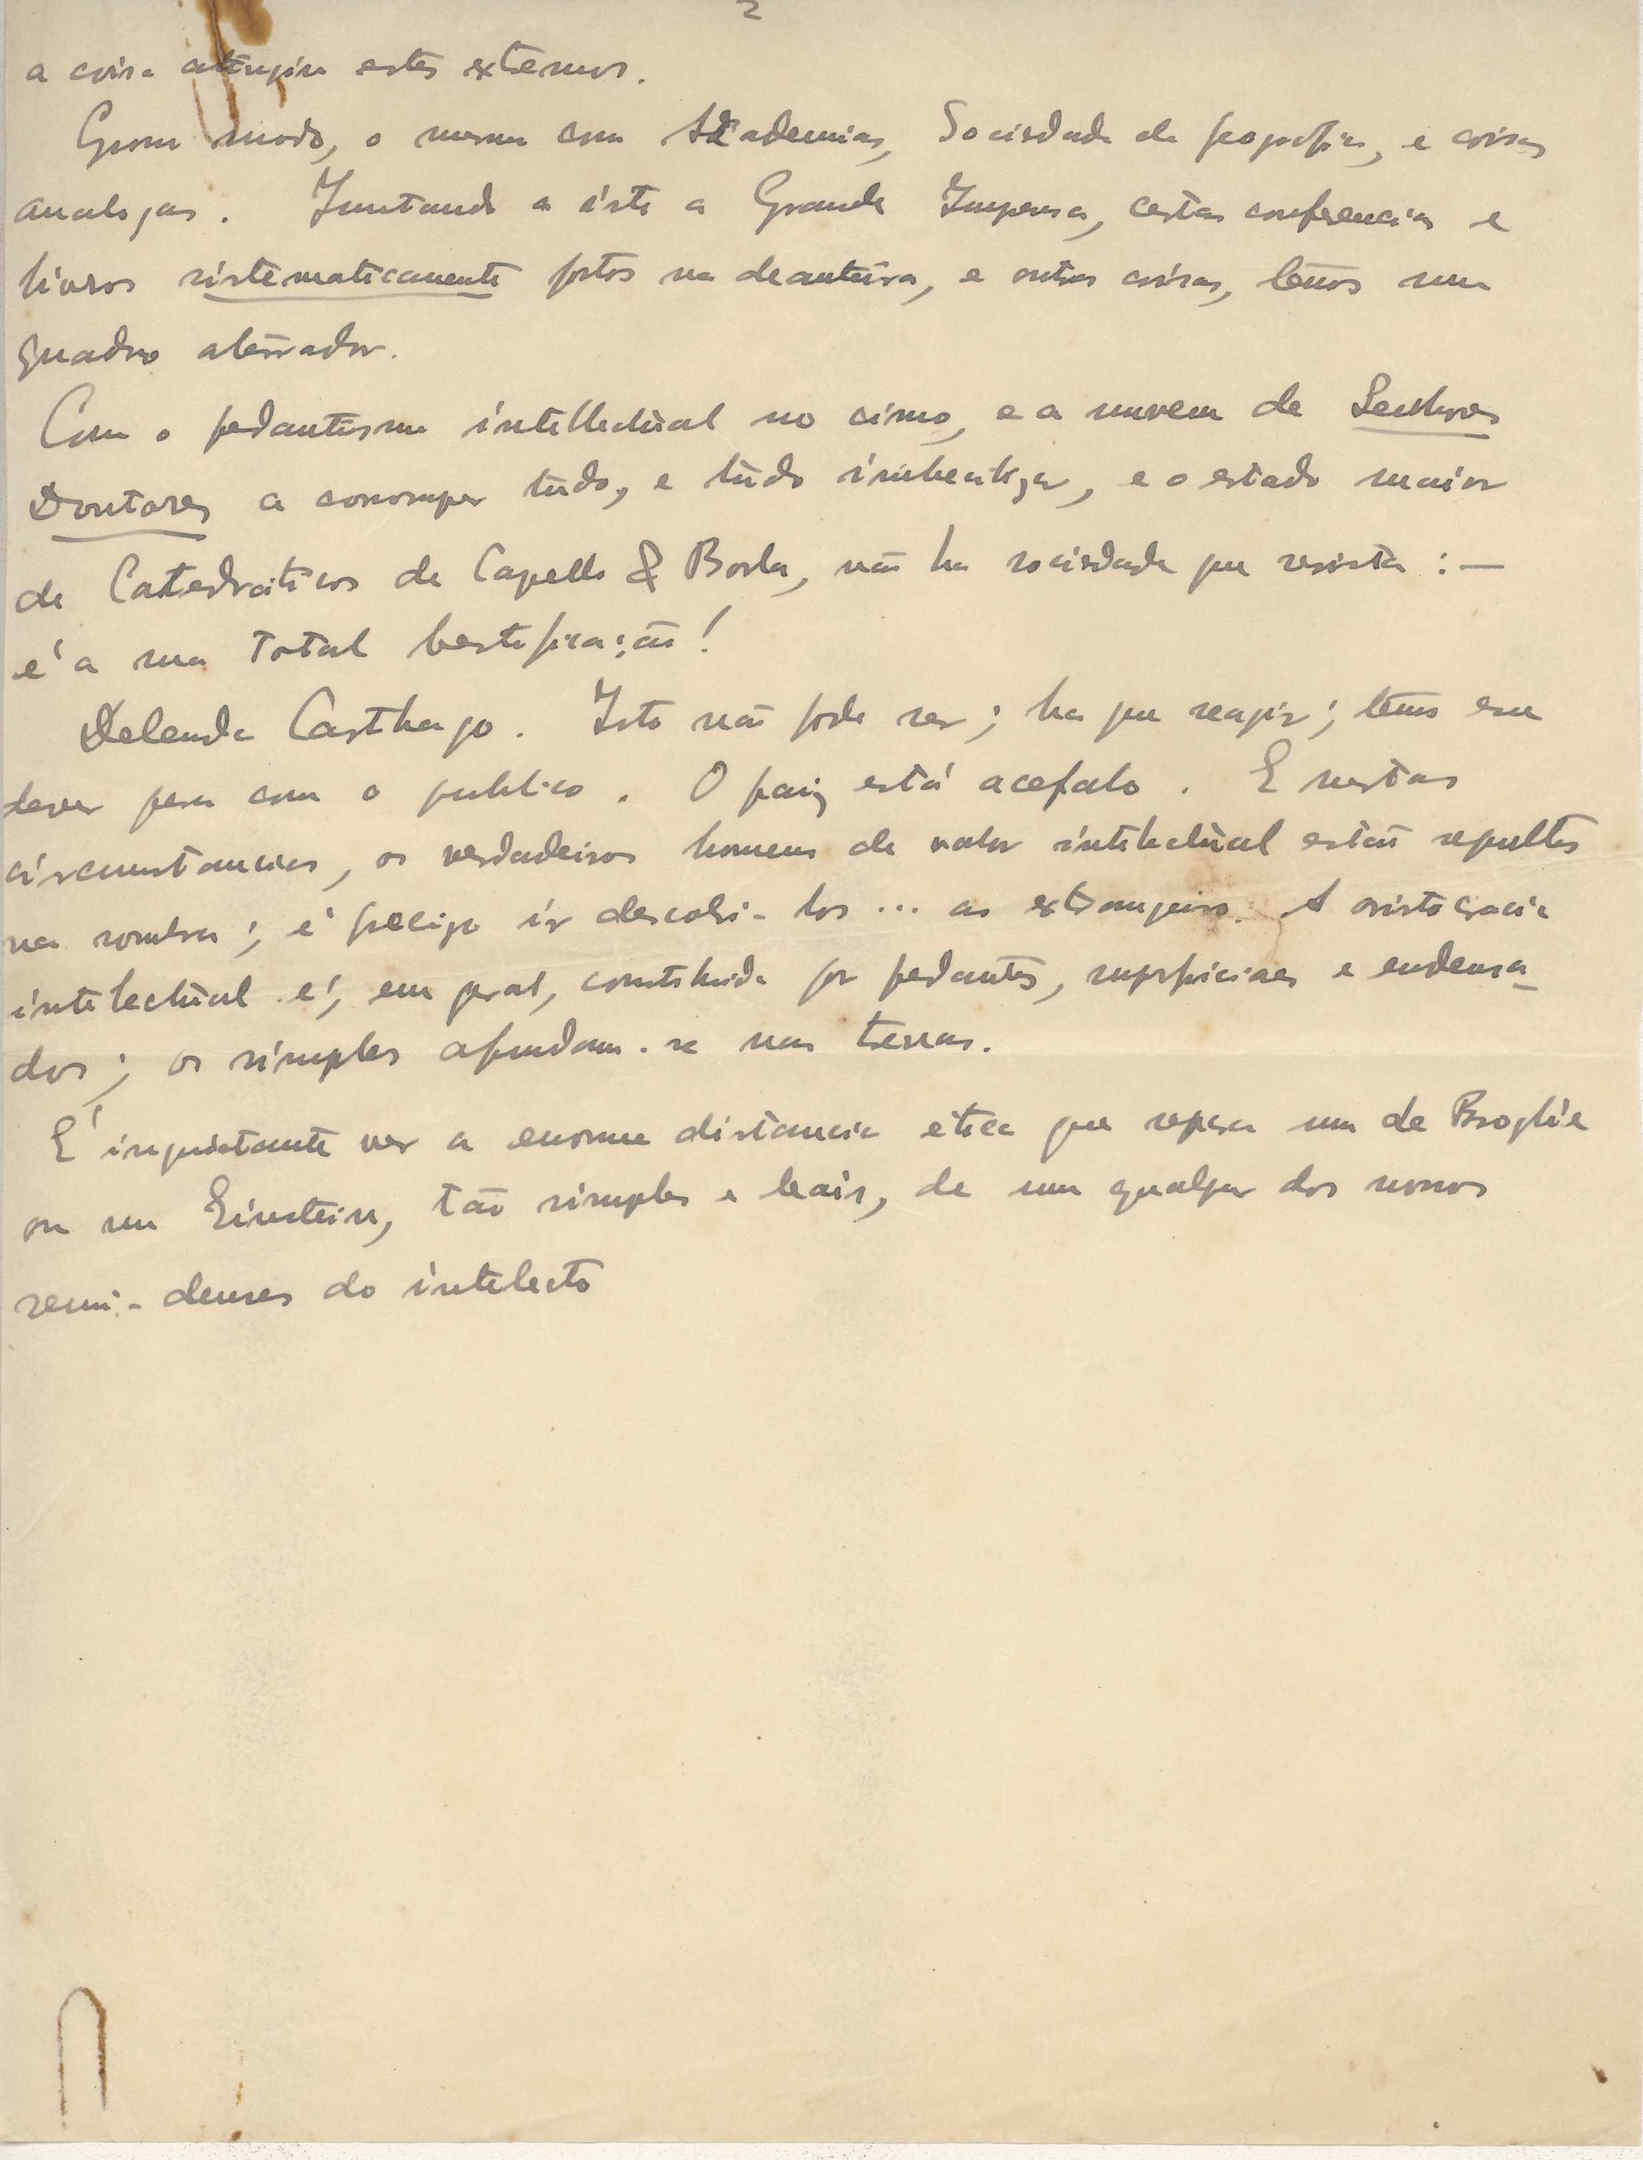 2
a coisa atingiu estes extremos.
Grosso modo, o mesmo com Academias, Sociedade de geografia, e coisas
analogas. Juntando a isto a Grande Imprensa, certas conferencias e
livros sistematicamente postos na deanteira, e outras coisas, temos um
quadro aterrador.
Com o pedantismo intellectual no cimo, e a nuvem de Senhores
Doutores a corromper tudo, e tudo imbecilizar, e o estado maior
de Catedráticos de Capello & Borla, não ha sociedade que resista : —
é a sua total bestificação!
Delenda Carthago. Isto não pode ser; ha que reagir; temos esse
dever para com o publico. O paiz está acefalo. E nestas
circunstancias, os verdadeiros homens de valor intelectual estão sepultos
na sombra; é preciso ir descobri-los ... ao extrangeiro. A aristocracia
intelectual é, em geral, constituida por pedantes, superficiaes e endeusa-
dos; os simples afundam-se nas trevas.
É inquietante ver a enorme distancia etica que separa um de Broglie
ou um Einstein, tão simples e leais, de um qualquer dos nossos
semi-deuses do intelecto